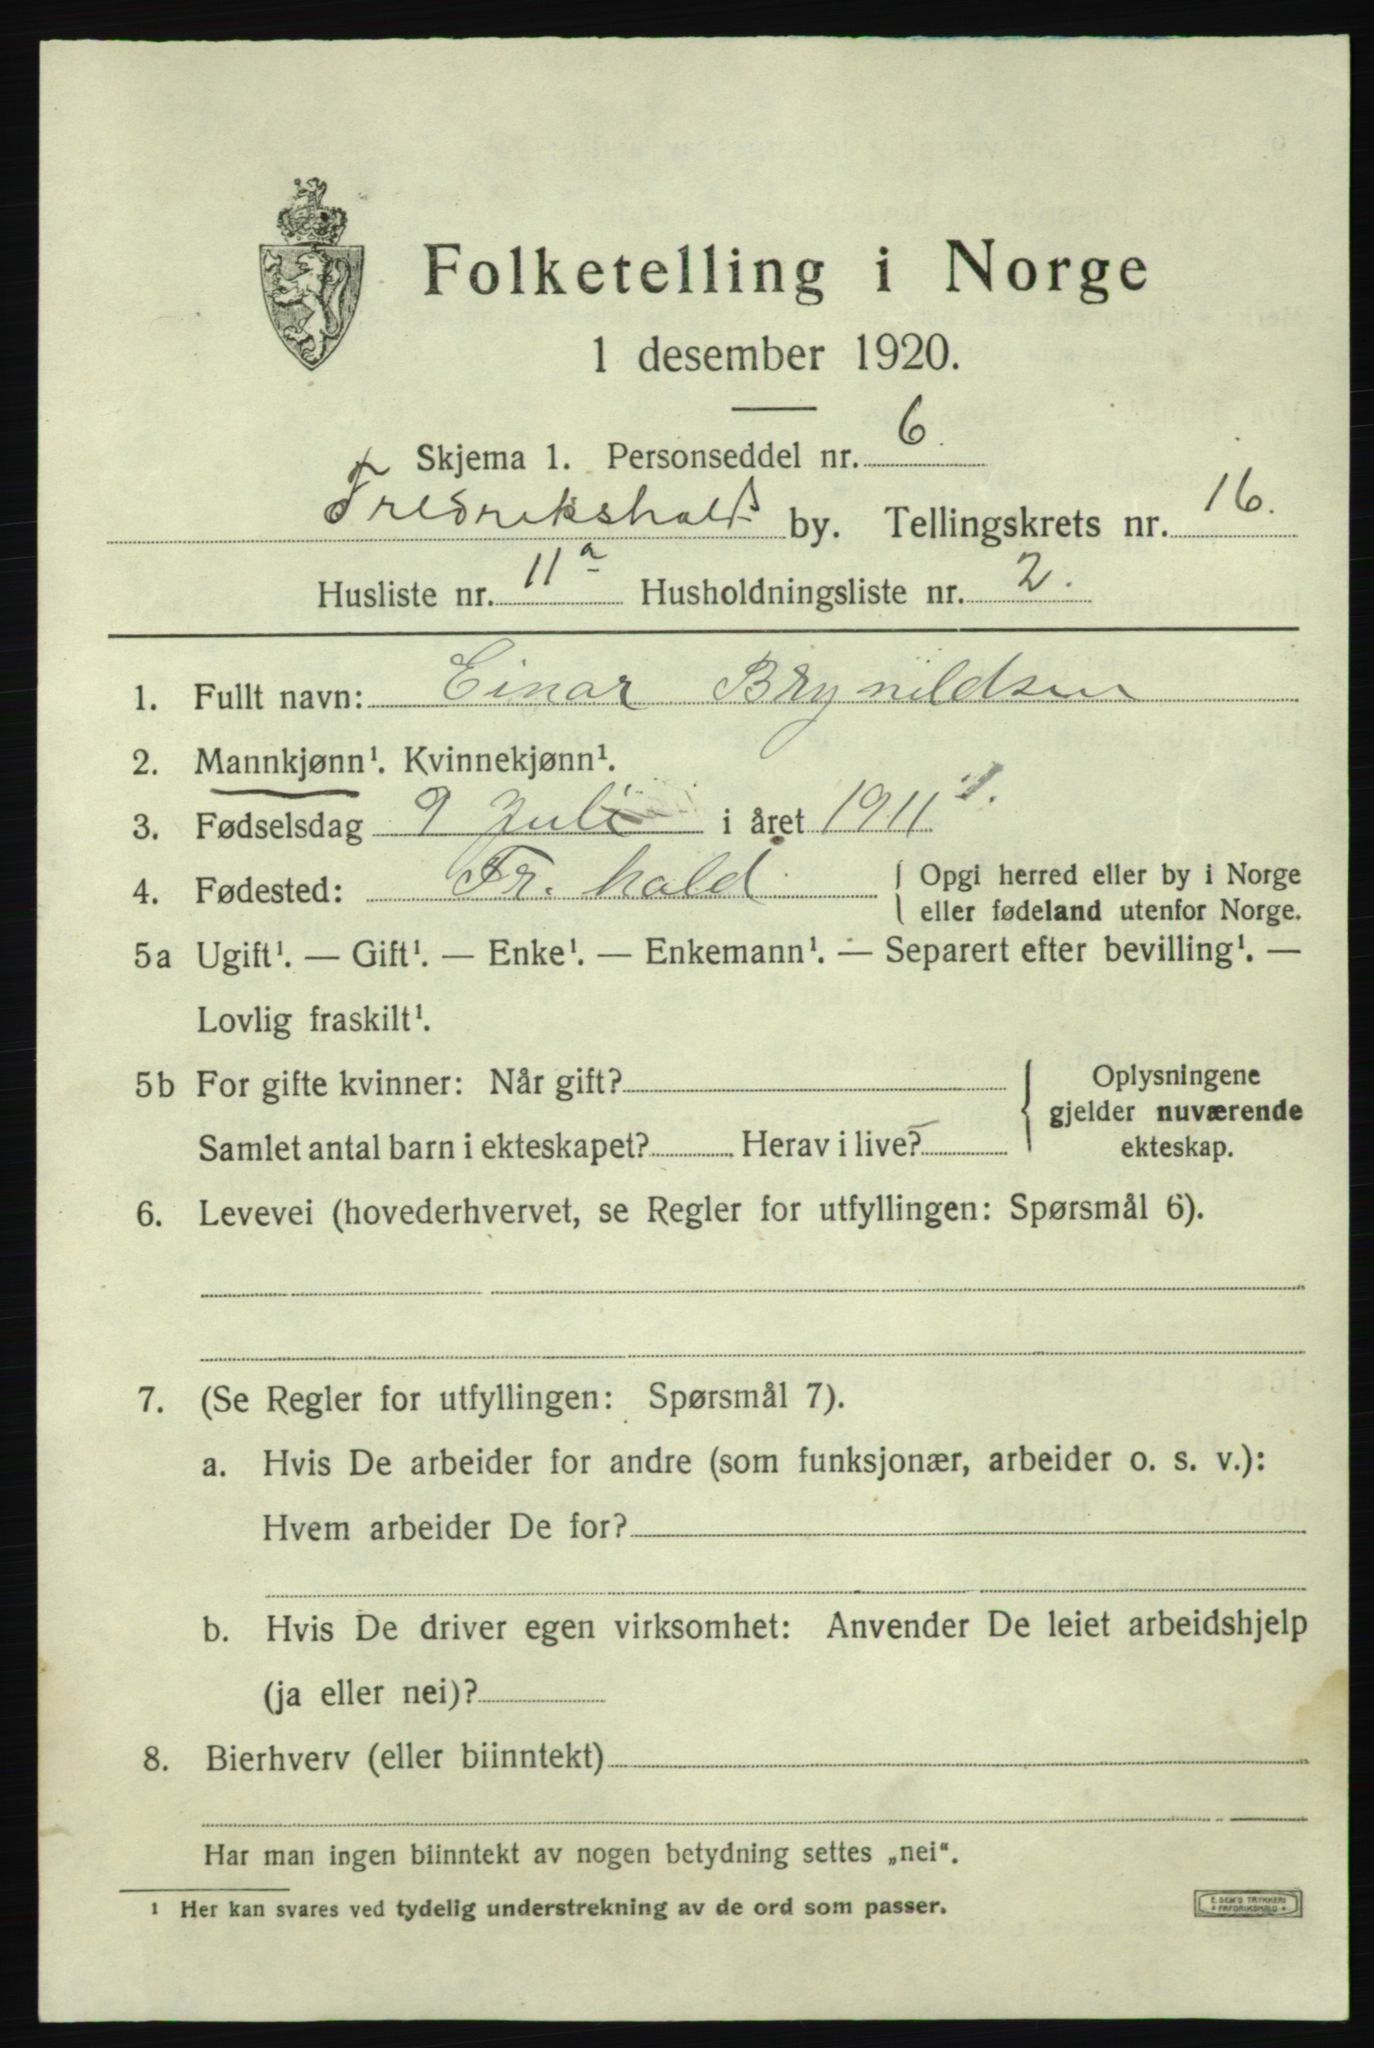 Folketelling i Norge
1 desember 1920.
Skjema 1. Personseddel nr. 6.
Fredrikshald by. Tellingskrets nr. 16.
Husliste nr. 11a Husholdningsliste nr. 2.
1. Fullt navn: Einar Brynildsen
2. Mannkjønn¹. Kvinnekjønn¹.
3. Fødselsdag 9 Juli i året 1911
4. Fødested: Fr. hald { Opgi herred eller by i Norge
eller fødeland utenfor Norge.
5a Ugift¹. — Gift¹. — Enke¹. — Enkemann¹. — Separert efter bevilling¹. —
Lovlig fraskilt¹.
5b For gifte kvinner: Når gift?
Samlet antal barn i ekteskapet? Herav i live?
Oplysningene
gjelder nuværende
ekteskap.
6. Levevei (hovederhvervet, se Regler for utfyllingen: Spørsmål 6).
7. (Se Regler for utfyllingen: Spørsmål 7).
a. Hvis De arbeider for andre (som funksjonær, arbeider o. s. v.):
Hvem arbeider De for?
b. Hvis De driver egen virksomhet: Anvender De leiet arbeidshjelp
(ja eller nei)?
8. Bierhverv (eller biinntekt)
Har man ingen biinntekt av nogen betydning settes „nei“.
¹ Her kan svares ved tydelig understrekning av de ord som passer.
E. SEM'S TRYKKERI
FREDRIKSHALD